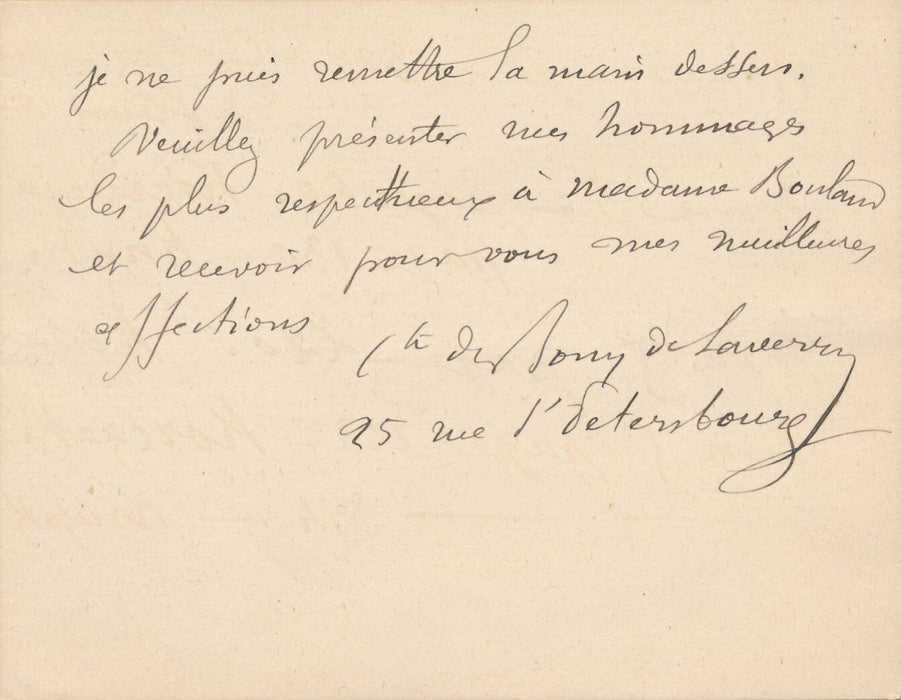 je ne puis remettre la main dessus.
Veuillez présenter mes hommages
les plus respectueux à madame Bouland
et recevoir pour vous mes meilleures
affections
Cte de Bony de Lavergne
25 rue St Petersbourg